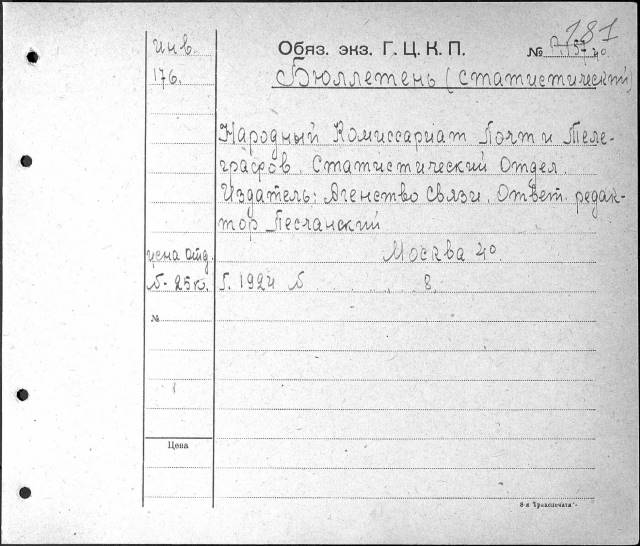 181
Инв.
176.
Обяз. экз. Г. Ц. К. П.
№ П.157 4°
Бюллетень (статистический)
Народный Комиссариат Почт и Теле-
графов. Статистический Отдел.
Издатель: Агенство Связи. Ответ. редак-
тор Песланский
Москва 4°
цена отд.
б. 25к.
г. 1924 б
8.
№
Цена
8-я